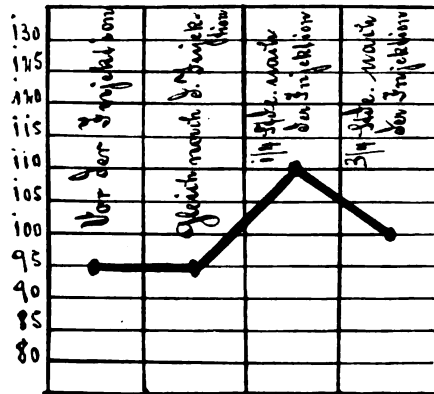 130
125
120
115
110
105
100
95
90
85
80
Vor der Injektion
Gleich nach d. Injek-
tion
1/4 Stde. nach
der Injektion
3/4 Stde. nach
der Injektion